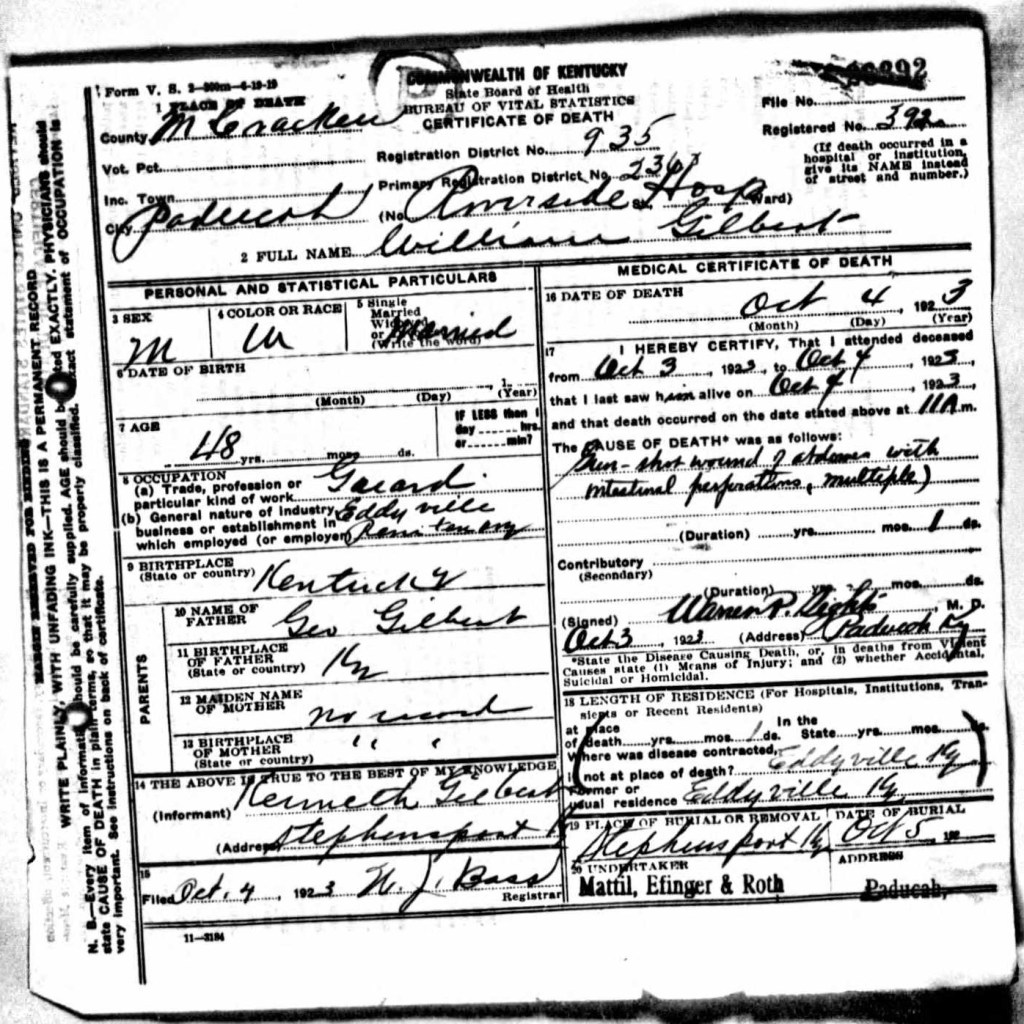 Form V. S. 2-500m-6-19-19
COMMONWEALTH OF KENTUCKY
State Board of Health
BUREAU OF VITAL STATISTICS
CERTIFICATE OF DEATH
1 PLACE OF DEATH
County McCracken
File No.
Registered No. 392
Vot. Pct.
Registration District No. 935
(If death occurred in a hospital or institution, give its NAME instead of street and number.)
Inc. Town
Primary Registration District No.
City Paducah (No. Riverside Hosp St. Ward)
2 FULL NAME William Gilbert
PERSONAL AND STATISTICAL PARTICULARS
3 SEX M
4 COLOR OR RACE W
5 Single Married Widowed or (Write the word) Married
6 DATE OF BIRTH
, 1
(Month) (Day) (Year)
7 AGE
48 yrs. mos. ds.
IF LESS than 1 day hrs. or min?
8 OCCUPATION
(a) Trade, profession or particular kind of work Gaurd
(b) General nature of industry, business or establishment in which employed (or employer) Eddyville Penitentiary
9 BIRTHPLACE
(State or country) Kentucky
PARENTS
10 NAME OF FATHER Geo Gilbert
11 BIRTHPLACE OF FATHER (State or country) Ky
12 MAIDEN NAME OF MOTHER no record
13 BIRTHPLACE OF MOTHER (State or country) " "
14 THE ABOVE IS TRUE TO THE BEST OF MY KNOWLEDGE
(Informant) Kenneth Gilbert
(Address) Stephensport Ky
15
Filed Oct. 4, 1923 Registrar
11-3184
MEDICAL CERTIFICATE OF DEATH
16 DATE OF DEATH
Oct 4, 1923
(Month) (Day) (Year)
17 I HEREBY CERTIFY, That I attended deceased
from Oct 3, 1923, to Oct 4, 1923,
that I last saw him alive on Oct 4, 1923
and that death occurred on the date stated above at 11A m.
The CAUSE OF DEATH* was as follows:
Gun-shot wound of abdomen with
intestinal perforations, multiple)
(Duration) yrs. mos. 1 ds.
Contributory
(Secondary)
(Duration) yrs. mos. ds.
(Signed) Warren P. , M. D.
Oct 3 1923 (Address) Paducah Ky
*State the Disease Causing Death, or, in deaths from Violent Causes state (1) Means of Injury; and (2) whether Accidental, Suicidal or Homicidal.
18 LENGTH OF RESIDENCE (For Hospitals, Institutions, Transients or Recent Residents)
At place of death yrs. mos. 1 ds. In the State yrs. mos. ds.
Where was disease contracted, if not at place of death? Eddyville Ky
Former or usual residence Eddyville Ky.
19 PLACE OF BURIAL OR REMOVAL Stephensport Ky
DATE OF BURIAL Oct 5 192
20 UNDERTAKER
Mattil, Efinger & Roth
ADDRESS
Paducah,
MARGIN RESERVED FOR BINDING
WRITE PLAINLY, WITH UNFADING INK—THIS IS A PERMANENT RECORD
N. B.—Every item of information should be carefully supplied. AGE should be stated EXACTLY. PHYSICIANS should state CAUSE OF DEATH in plain terms, so that it may be properly classified. Exact statement of OCCUPATION is very important. See instructions on back of certificate.